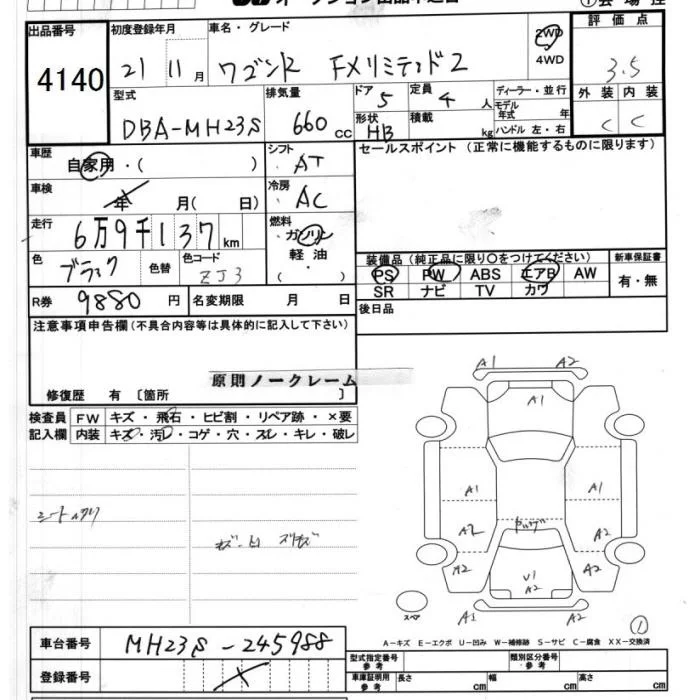 出品番号 4140
初度登録年月 21 11月
車名・グレード ワゴンR FXリミテッド2
2WD
4WD
評価点 3.5
外装 内装
C C
型式 DBA-MH23S
排気量 660 cc
ドア 5
定員 4 人
形状 HB
積載 kg
ディーラー・並行
モデル年式 年
ハンドル 左・右
車歴 自家用・( )
シフト AT
セールスポイント (正常に機能するものに限ります)
車検 年 月( 日)
冷房 AC
走行 6万9千137km
燃料 ガソリン
軽油
( )
色 ブラック 色替
色コード ZJ3
装備品 (純正品に限り○をつけてください)
PS PW ABS エアB AW
SR ナビ TV カワ
新車保証書
有・無
R券 9880円
名変期限 月 日
後日品
注意事項申告欄(不具合内容等は具体的に記入して下さい)
原則ノークレーム
修復歴 有〔箇所 〕
検査員記入欄
FW キズ・飛石・ヒビ割・リペア跡・×要
内装 キズ・汚レ・コゲ・穴・スレ・キレ・破レ
A1 A2
A1
A1 A1
A2 A2
A2 A2
U1
A2
A2
スペア
①
A-キズ E-エクボ U-凹み W-補修跡 S-サビ C-腐食 XX-交換済
車台番号 MH23S-245988
登録番号
型式指定番号 参考
類別区分番号 参考
車庫証明用 参考
長さ cm 幅 cm 高さ cm